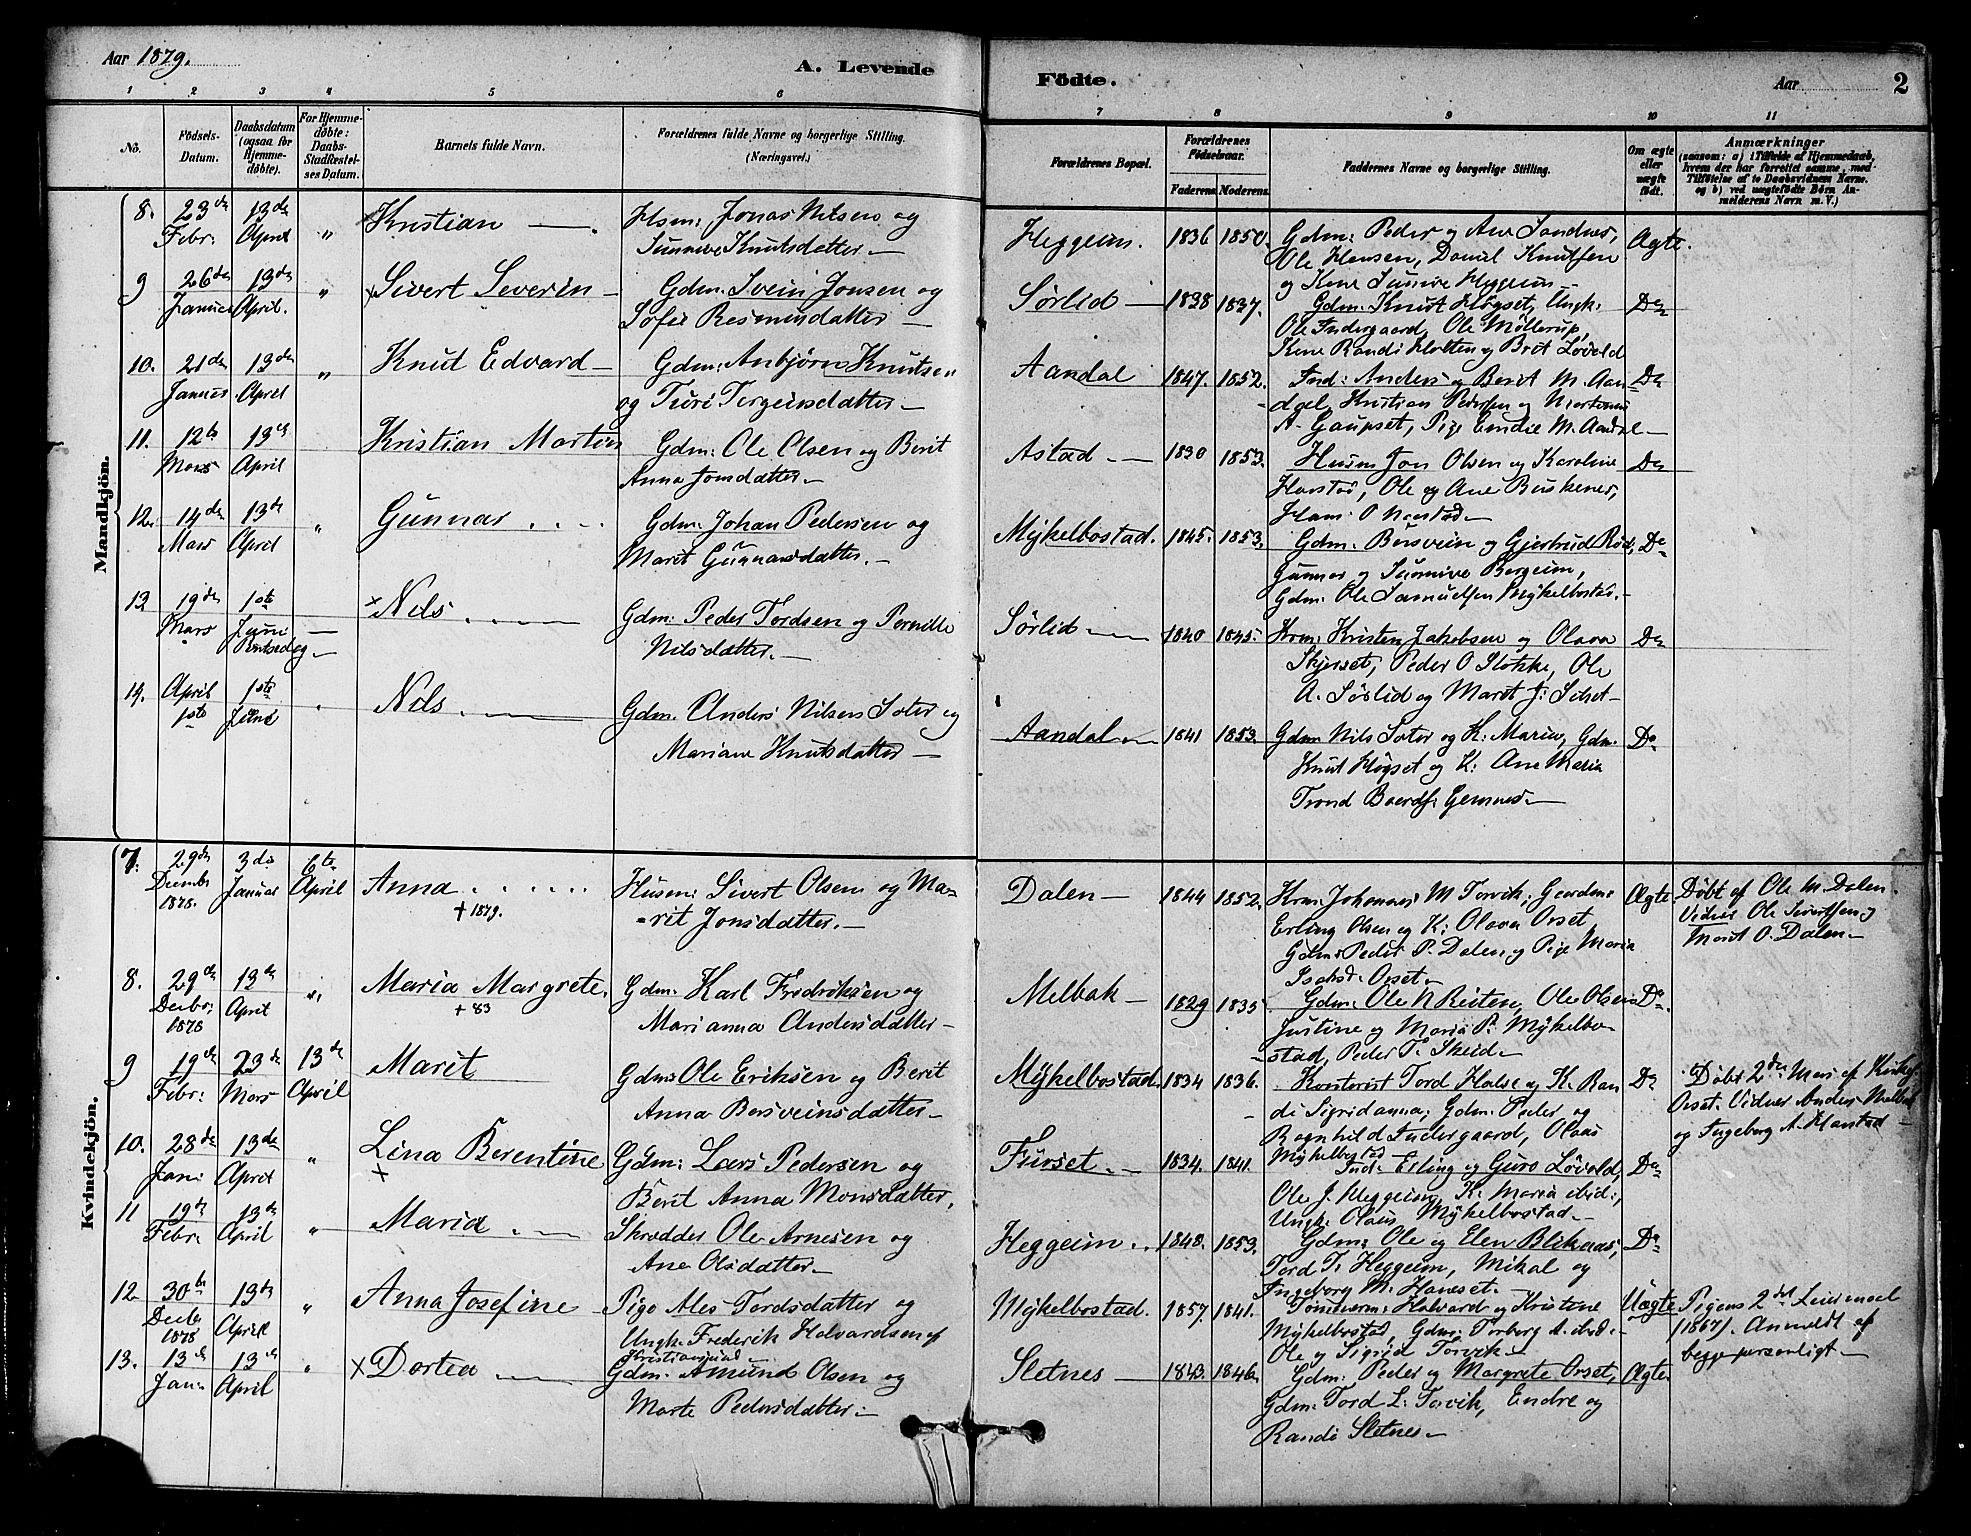 Aar 1879.
A. Levende
Födte.
Aar
2
1 2 3 4 5 6 7 8 9 10 11
No.
Födsels-Datum.
Daabsdatum (ogsaa for Hjemme-döbte).
For Hjemme-döbte: Daabs-Stadfæstel-ses Datum.
Barnets fulde Navn.
Forældrenes fulde Navne og borgerlige Stilling. (Næringsvei.)
Forældrenes Bopæl.
Forældrenes Födselsaar.
Faderens. Moderens.
Faddernes Navne og borgerlige Stilling.
Om ægte eller uægte födt.
Anmærkninger
(saasom: a) i Tilfælde af Hjemmedaab,
hvem der har forrettet samme, med
Tilföielse af to Daabsvidners Navne.
og b) ved uægtefödte Börn An-
melderens Navn m. V.)
Mandkjön.
8. 23de Febr: 13de April " Kristian Hsm: Jonas Nilsen og
Sunnive Knutsdatter
Heggeim. 1836 1850. Gdm: Peder og Ane Sandnes, Ægte.
Ole Hansen, Daniel Knutsen
og Kone Sunive Heggeim
9 26de Januar 13de April. " Sivert Severin Gdm. Svein Jonsen og
Sofie Rasmusdatter
Sørlid 1838 1837. Gdm: Knut Høgset, Ungk: Do
Ole Indergaard, Ole Möllerup,
Kone Randi Holten og Brit Løvold
10. 21de Januar 13de April " Knut Edvard Gdm: Anbjørn Knutsen
og Turi Torgeirsdatter
Aandal 1847. 1852. Ind: Anders og Berit M. Aan Do
dal, Kristian Pedersen og
A. Gaupset, Pige M. Aandal
11. 12te Mars 13de April Kristian Martin Gdm: Ole Olsen og Berit
Anna Jonsdatter
Astad 1830 1853. Husm Jon Olsen og Karoline Do
Harstad, Ole og Ane Buskenes,
12. 14de Mars 13de April " Gunnar Gdm: Johan Pedersen og
Marit Gunnarsdatter.
Mÿkelbostad. 1845. 1853. Gdm: Bersvein og Gjertrud Rød, Do
Gunnar og Sunnive Bergeim,
Gdm: Ole Samuelsen Mÿkelbostad.
13 19de Mars 1ste Juni Pintsedag × Nils Gdm: Peder Tordsen og Pernille
Nilsdatter.
Sørlid 1840 1845. Krm: Kristen Jakobsen og Olava Do
Skjerset, Peder O Stokke, Ole
A. Sørlid og Marit J:
14. April 1ste 1ste Juni " Nils Gdm. Anders Nilsen Soter og
Mariane Knutsdatter
Aandal 1841 1853. Gdm Nils Soter og K: Maria, Gdm. Do
Knut Høgset og K: Ane Maria
Trond Gemnes
Kvindekjön.
7. 29de Decembr 1878. 3die Januar 6te April Anna
+ 1879.
Husm: Sivert Olsen og Ma=
=rit Jonsdatter.
Dalen 1844 1852. Krm: Johannes M Torvik, Ægte
Erling Olsen og K: Olava Orset
Gdm: Peder P. Dalen og Pige Maria
Isaksd: Orset
Döbt af Ole M. Dalen.
Vidner Ole Sivertsen og
Marit O. Dalen
8. 29de Decbr: 1878 13de April " Maria Margrete.
+ 83
Gdm: Karl Fredriksen og
Marianna Andersdatter
Melbak 1829 1835 Gdm: Ole N Reiten, Ole Olsen Do
Justine og Maria P. Mÿkelbo
stad, Peder T. Skeid
9 19de Febr: 23de Mars 13de April Marit Gdm: Ole Eriksen og Berit
Anna Bersveinsdatter
Mÿkelbostad. 1834 1836. Kontorist Tord Halse og K. Ran Do
di Sigridanna, Gdm: Peder og
Ragnhild Indergaard, Olaus
Mÿkelbostad
Döbt 2den Mars af Kirkes.
Orset. Vidner Anders Melbak
og Ingeborg A. Harstad
10. 28de Jan: 13de April " Lina Berentine
×
Gdm: Lars Pedersen og
Berit Anna Monsdatter,
Furset. 1834. 1841. Ind: Erling og Guro Løvold, Do
Ole J. Heggeim, K. Maria ibid:,
Ungk: Olaus Mÿkelbostad
11 19de Febr: 13de April " Maria Skrædder Ole Arnesen og
Ane Olsdatter
Heggeim 1848. 1853. Gdm: Ole og Elen Blikaas, Do
Tord T. Heggeim, Mikal og
Ingeborg M. Haneset
12. 30te Decbr 1878 13de April " Anna Josefine Pige Ales Tordsdatter og
Ungk: Frederik Halvardsen af
Kristiansund
Mÿkelbostad. 1857. 1841. Tömmerm: Halvard og Kristine Uægte
Mÿkelbostad, Gdm: Torberg A. ibid:
Ole og Sigrid Torvik
Pigens 2det Leiermaal
(1867). Anmeldt af
begge personligt
13. 13de Jan: 13de April " × Dortea Gdm. Amund Olsen og
Marte Pedersdatter
Sletnes 1843. 1846. Gdm: Peder og Margrete Orset, Ægte.
Gdm: Tord L: Torvik, Endre og
Randi Sletnes